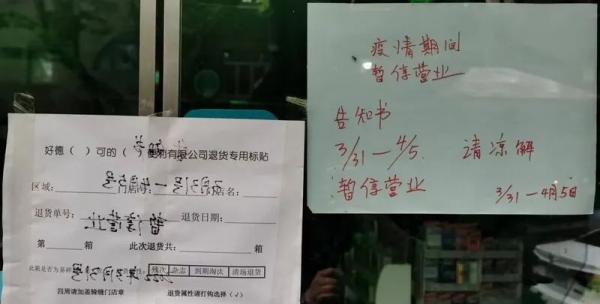 疫情期间
暂停营业
告知书
3/31—4/5. 请凉解
暂停营业 3/31—4月5日
好德（ ）可的（ ）便利有限公司退货专用标贴
区域: 店名:
退货单号: 退货日期:
第 箱 此次退货共: 箱
残次 杂志 到期淘汰 清场退货
四周请加盖骑缝门店章 退货属性请打钩选择（√）